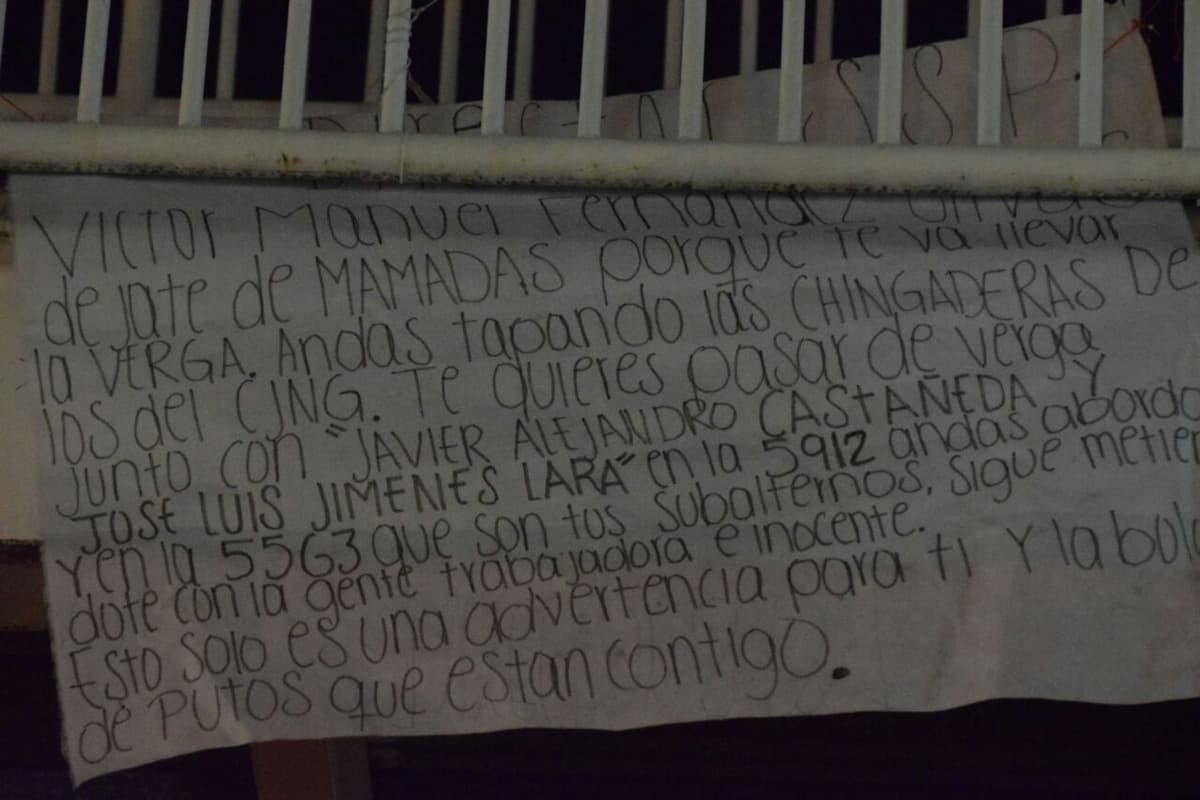 DIRECTOR SSP
VICTOR Manuel Fernandez
dejate de MAMADAS porque te va llevar
la VERGA. Andas tapando las CHINGADERAS De
los del CJNG. Te quieres pasar de verga
junto con "JAVIER ALEJANDRO CASTAÑEDA Y
JOSE LUIS JIMENES LARA" en la 5912 andas abordo
y en la 5563 que son tus subalternos. Sigue metien
dote con la gente trabajadora e inocente.
Esto solo es una advertencia para ti Y la bola
de PUTOS que estan contigo.